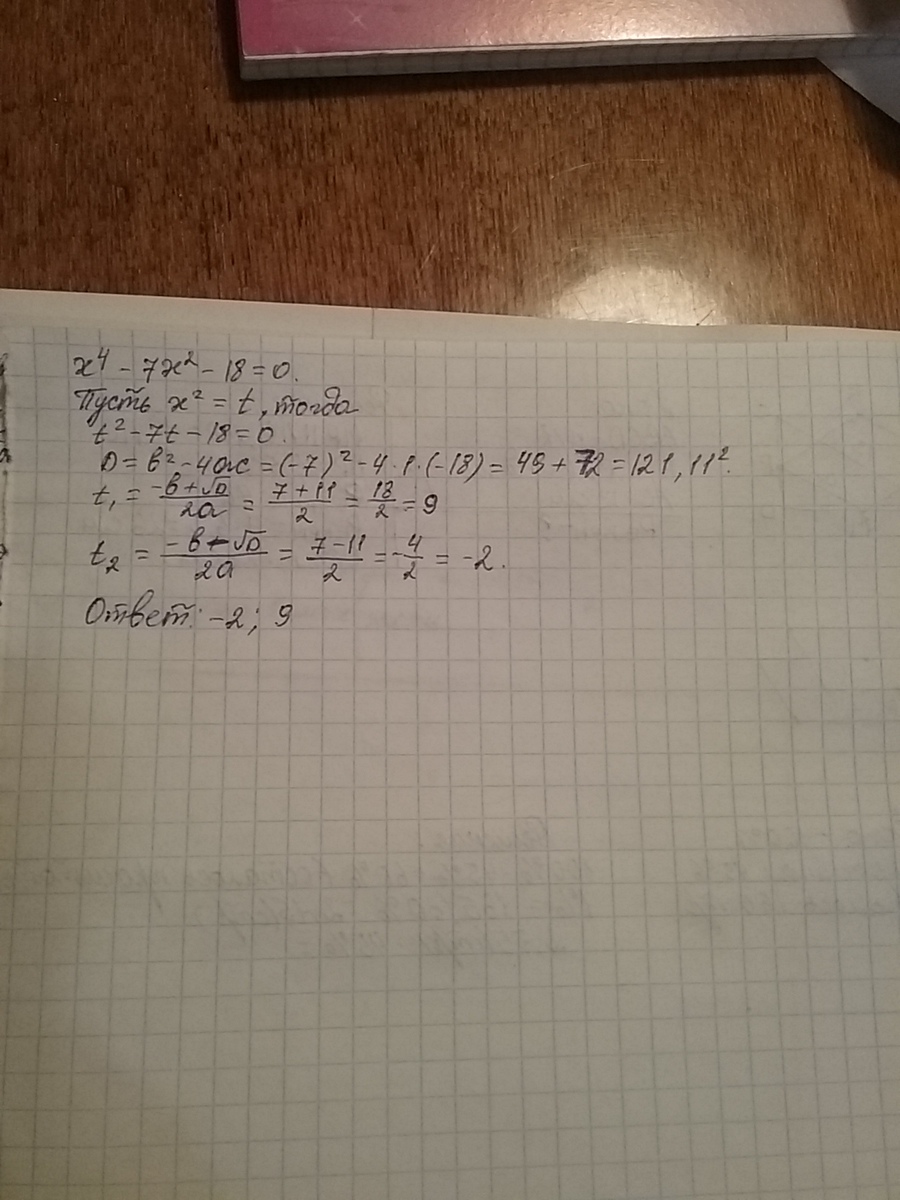 x⁴ - 7x² - 18 = 0.
Пусть x² = t, тогда
t² - 7t - 18 = 0.
D = b² - 4ac = (-7)² - 4·1·(-18) = 49 + 72 = 121, 11².
t₁ = (-b+√D)/2a = (7+11)/2 = 18/2 = 9
t₂ = (-b-√D)/2a = (7-11)/2 = -4/2 = -2.
Ответ: -2; 9